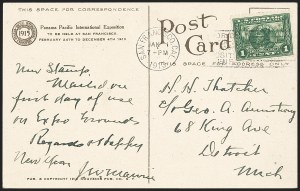 THIS SPACE FOR CORRESPONDENCE
Panama Pacific International Exposition
TO BE HELD AT SAN FRANCISCO,
FEBRUARY 20TH TO DECEMBER 4TH 1915
1915
Post
Card
THIS SPACE FOR ADDRESS ONLY
SAN FRANCISCO
JAN 1
PM
1
New Stamp.
Mailed on
first day of use
on Expo Grounds
Regards & Happy
New Year
H. H. Thatcher
c/o Geo. A. Armstrong
68 King Ave
Detroit
Mich